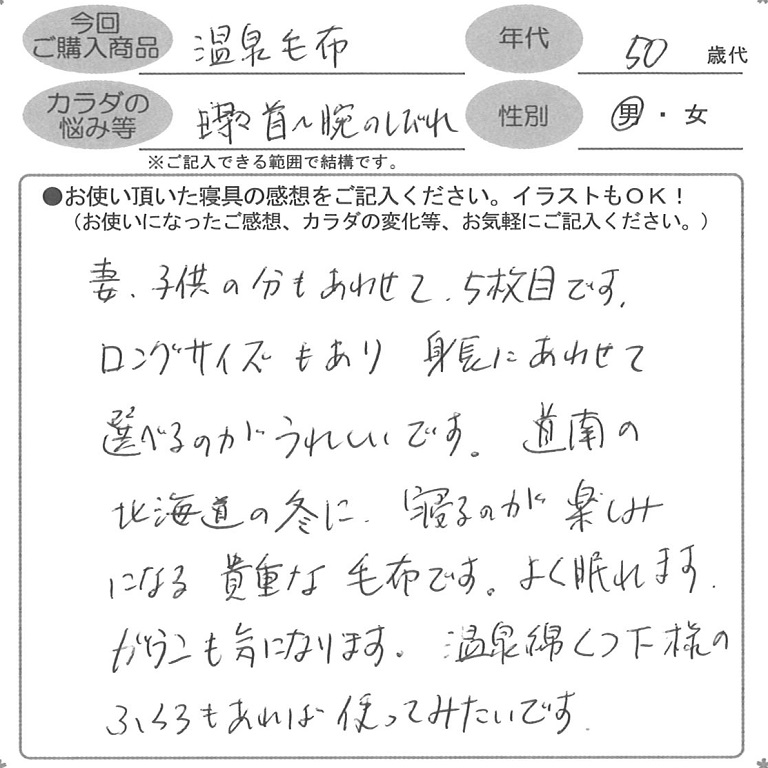 今回
ご購入商品
温泉毛布
年代
50 歳代
カラダの
悩み等
首〜腕のしびれ
性別
男・女
※ご記入できる範囲で結構です。
●お使い頂いた寝具の感想をご記入ください。イラストもOK！
（お使いになったご感想、カラダの変化等、お気軽にご記入ください。）
妻、子供の分もあわせて、5枚目です。
ロングサイズもあり 身長にあわせて
選べるのがうれしいです。道南の
北海道の冬に、寝るのが楽しみ
になる貴重な毛布です。よく眠れます。
も気になります。温泉綿くつ下様の
ふくろもあれば使ってみたいです。